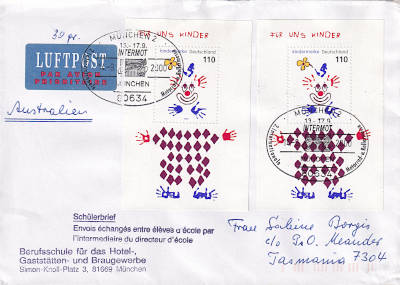 30 gr.
FÜR UNS KINDER
FÜR UNS KINDER
LUFTPOST
PAR AVION
PRIORITAIRE
MÜNCHEN 2
13.-17.9.
INTERMOT
2000
MÜNCHEN
80634
Kindermarke Deutschland
110
Kindermarke Deutschland
110
MÜNCHEN 2
13.-17.9.
INTERMOT
80634
Australien
Schülerbrief
Envois échangés entre élèves à école par
l'intermediaire du directeur d'école
Berufsschule für das Hotel-,
Gaststätten- und Braugewerbe
Simon-Knoll-Platz 3, 81669 München
Frau Sabine Borgis
c/o P.O. Meander
Tasmania 7304